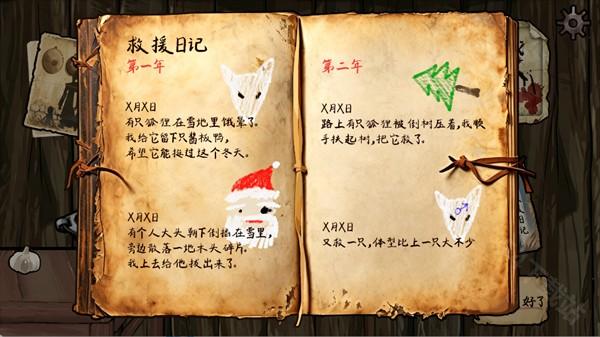 救援日记
第一年
X月X日
有只狐狸在雪地里饿晕了。
我给它留下只酱板鸭,
希望它能挺过这个冬天。
X月X日
有个人大头朝下倒插在雪里,
旁边散落一地木头碎片。
我上去给他拔出来了。
第二年
X月X日
路上有只狐狸被倒树压着,我顺
手扶起树,把它救了。
X月X日
又救一只,体型比上一只大不少
日记
好了